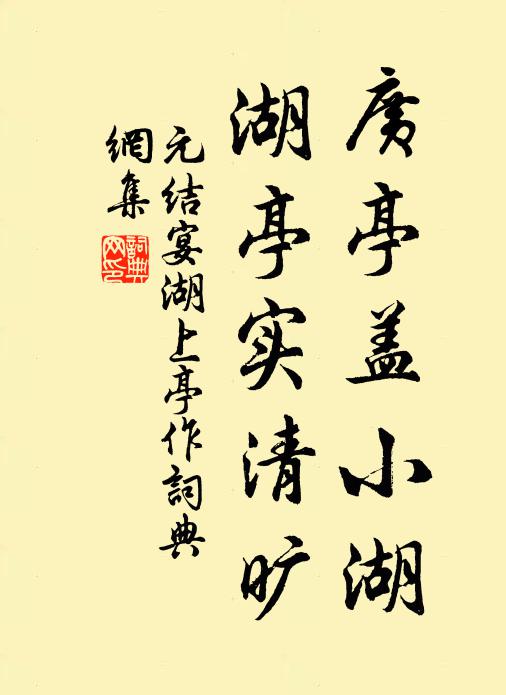 廣亭盖小湖
湖亭实清旷
元结宴湖上亭作詞典
網集
詞典
网印